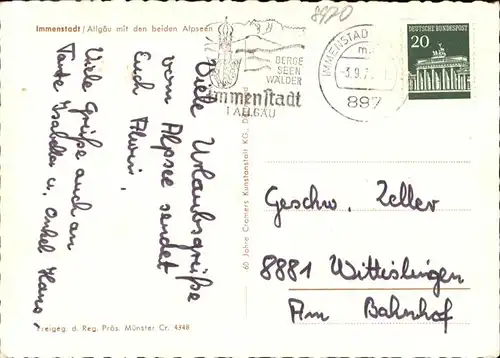 Immenstadt/Allgäu mit den beiden Alpseen
8920
BERGE
SEEN
WÄLDER
Immenstadt
I. ALLGÄU
IMMENSTAD
3.9.7
897
DEUTSCHE BUNDESPOST
20
Viele Urlaubsgrüße
vom Alpsee sendet
Euch Alwin.
Viele Grüße auch an
Tante Isabella u. Onkel Hans.
60 Jahre Cramers Kunstanstalt KG, Dortmund
Geschw. Zeller
8881 Wittislingen
Am Bahnhof
Freigeg. d. Reg. Präs. Münster Cr. 4348